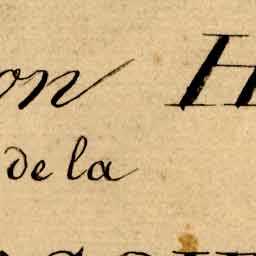 on H
de la